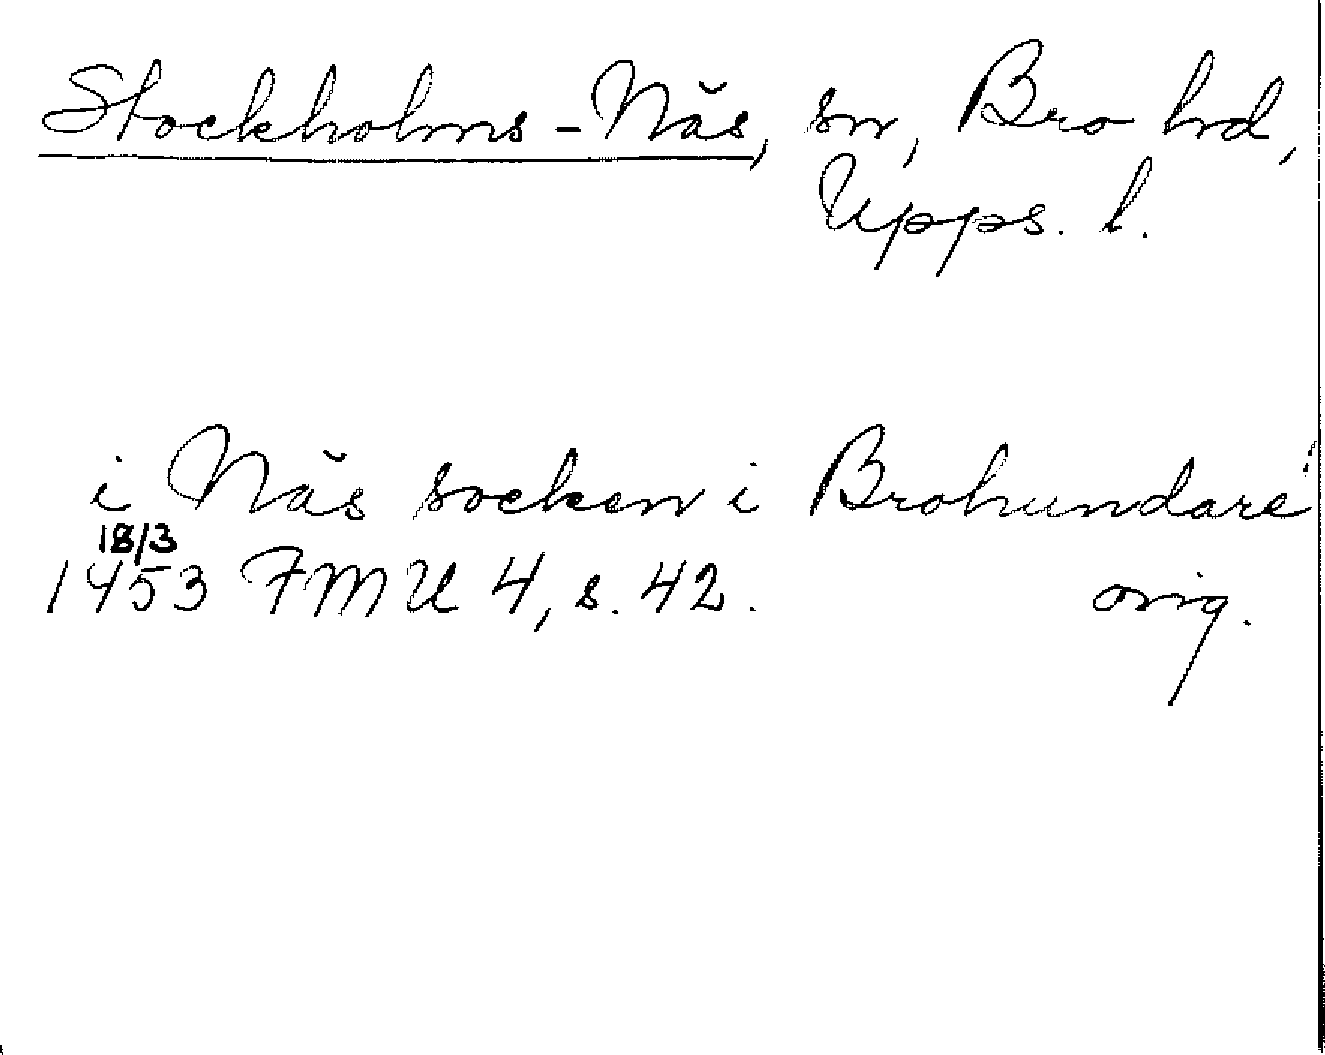 Stockholms-Näs, sn, Bro hd,
Upps. l.
i Näs socken i Brohundare
18/3
1453 FMU 4, s. 42. orig.